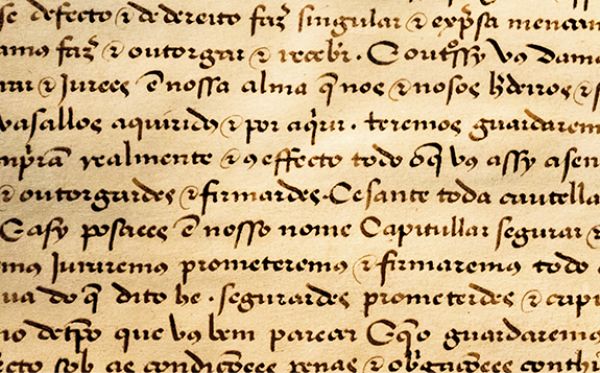 se defecto & de dereito faz singular & expsa mencam
amos faz & outorgar & recebr . Soutssy vos damo
rar & Jurees e nossa alma q nos & nosos hderos & s
vasallos aquiridos & por aqrir . teremos guardarem
npram realmente & 9 effecto todo o q vos assy asen
& outorgardes & firmardes . Cesante toda cautella
E asy posaees e nosso nome Capitullar segurar &
emos Juraremos prometeremos & firmaremos todo
ua do q dito he . segurardes prometerdes & capi
no detpo que vos bem parecer E q o guardaremos
ecto sob as condicoees penas & obrgacoees conth